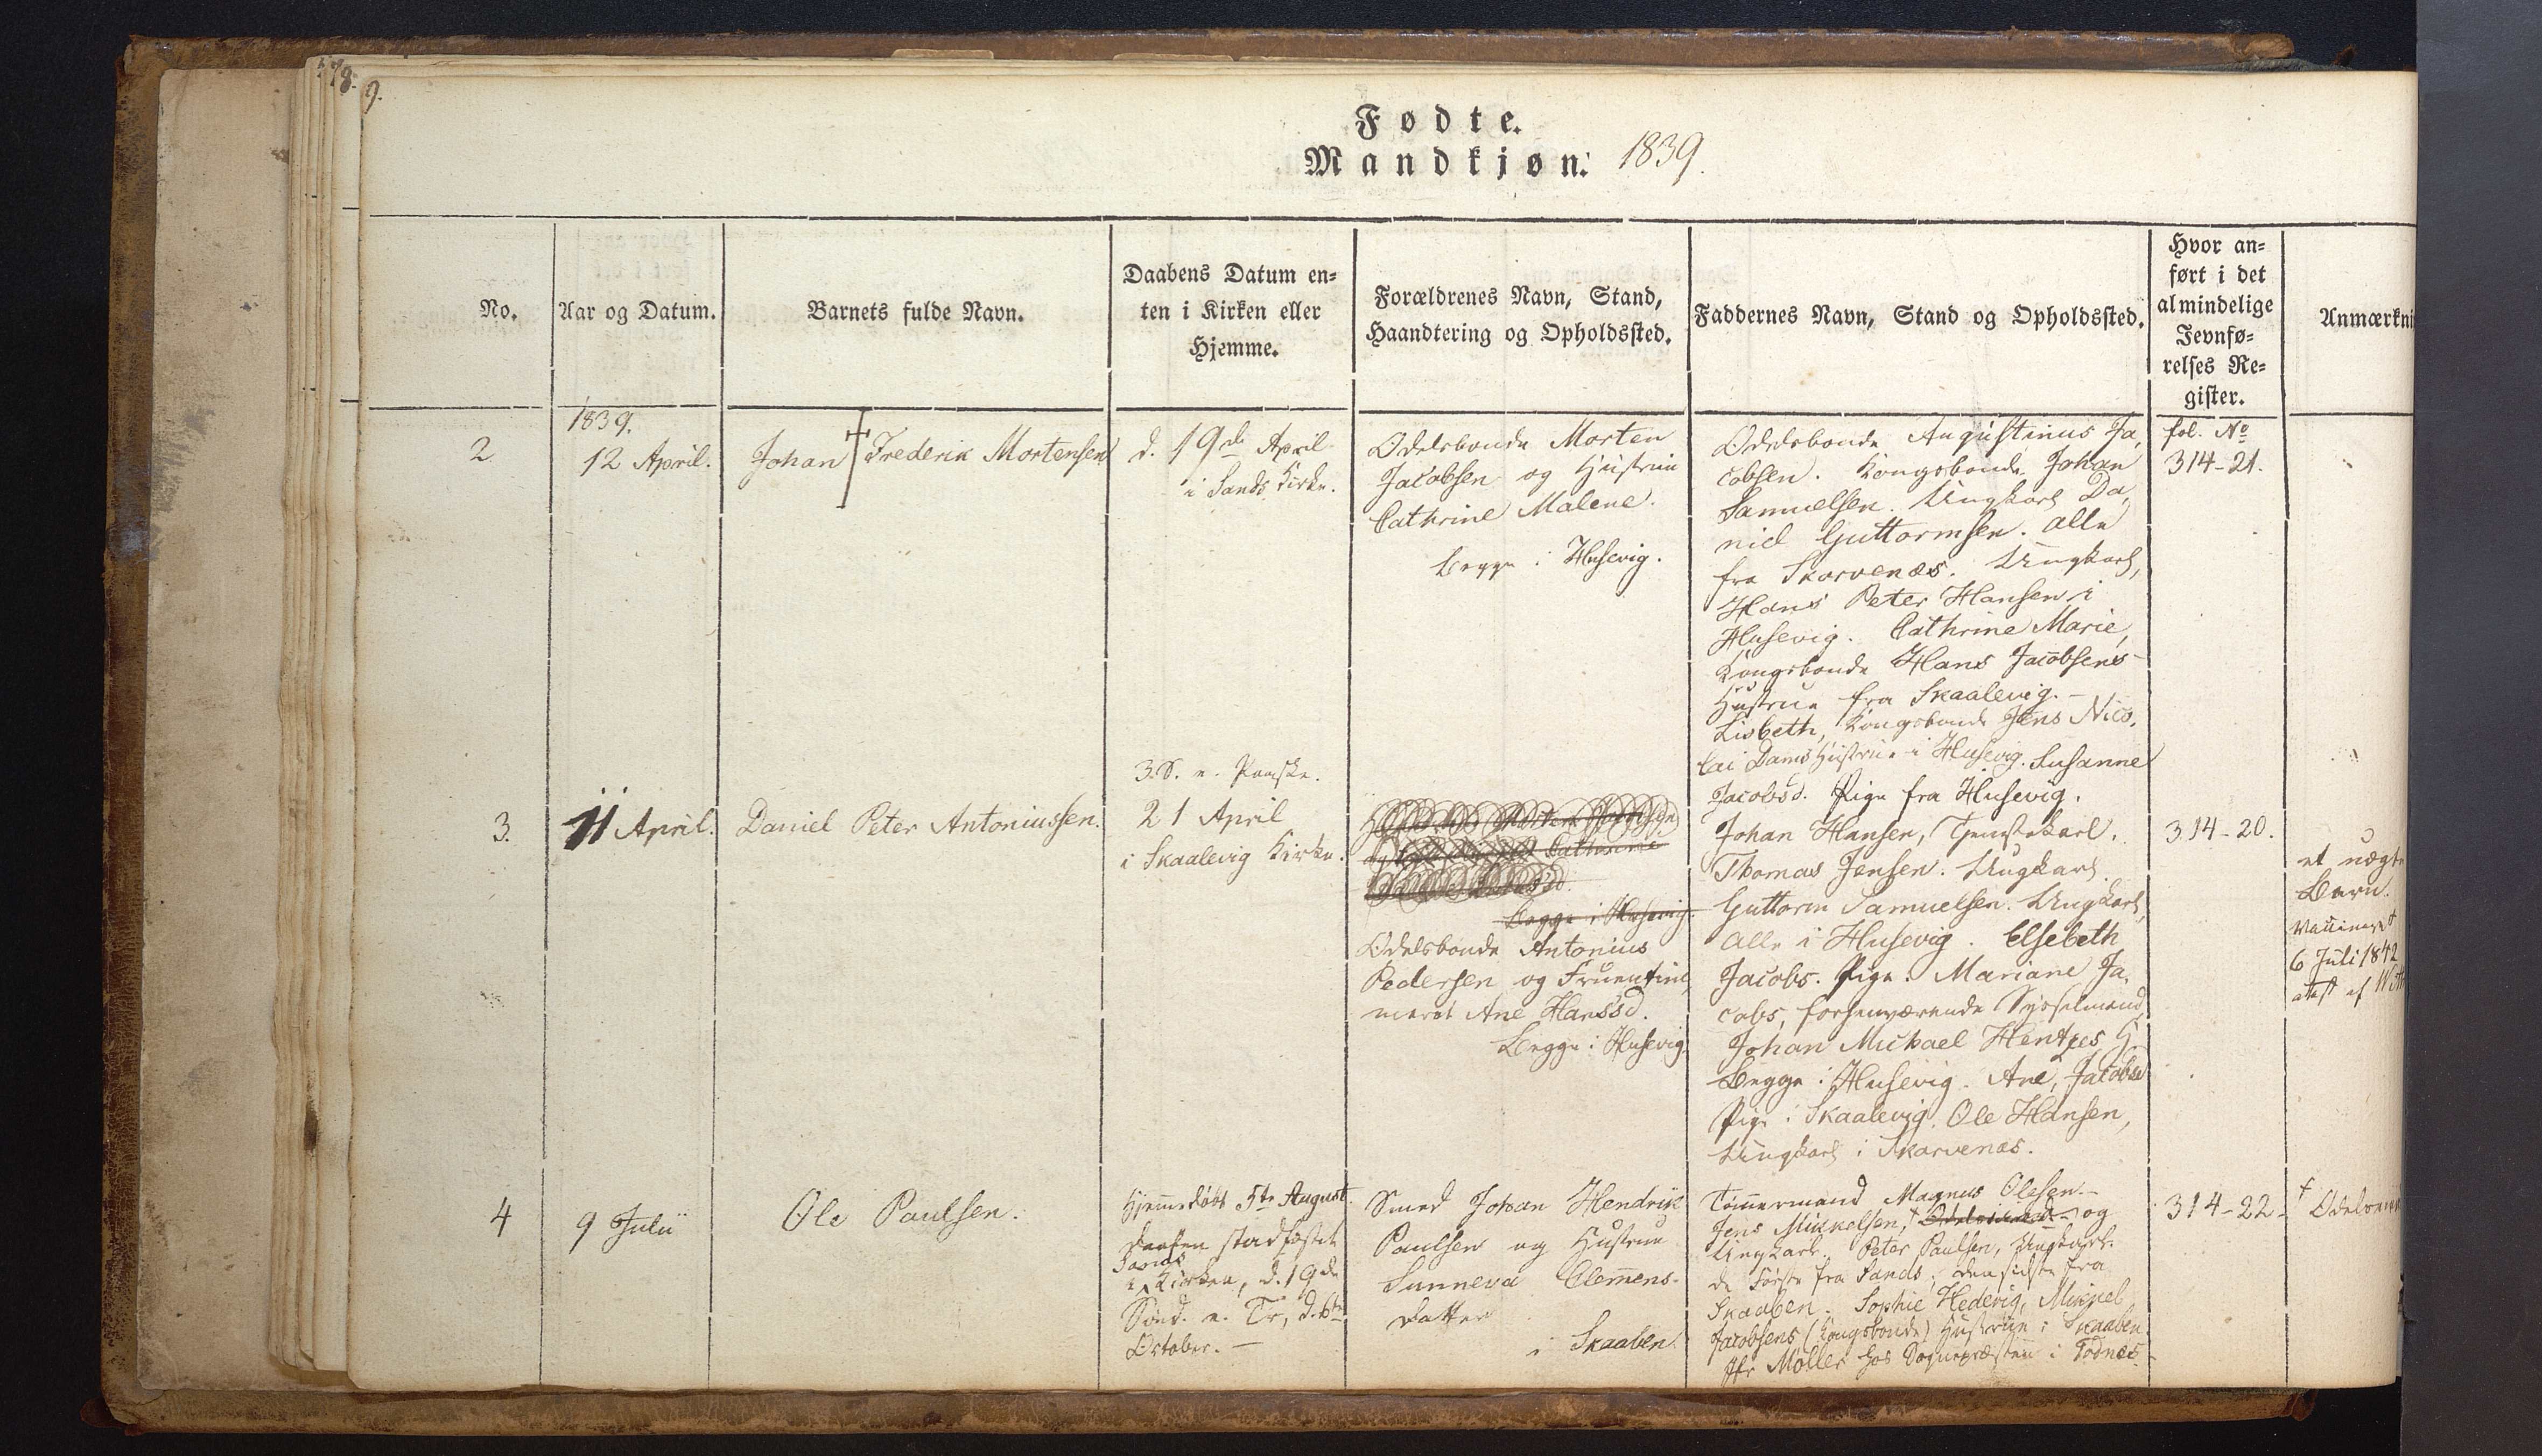 9.
Fødte.
Mandkjøn. 1839.
No.
Aar og Datum.
Barnets fulde Navn.
Daabens Datum en=
ten i Kirken eller
Hjemme.
Forældrenes Navn, Stand,
Haandtering og Opholdssted.
Faddernes Navn, Stand og Opholdssted.
Hvor an=
ført i det
almindelige
Jevnfø=
relses Re=
gister.
Anmærkni
2
1839.
12 April.
Johan Frederik Mortensen
d. 19de April
i Sands Kirke.
Odelsbonde Morten
Jacobsen og Hustrue
Cathrine Malene.
Begge i Husevig.
Odelsbonde Augustinus Ja,
cobsen. Kongsbonde Johan
Samuelsen. Ungkarl Da,
niel Guttormsen. alle
fra Skarvenæs. Ungkarl,
Hans Peter Hansen i
Husevig. Cathrine Marie,
Kongsbonde Hans Jacobsens
Hustrue fra Skaalevig. –
Lisbeth, Kongsbonde Jens Nico,
lai Dams Hustrue i Husevig. Susanne
Jacobsd. Pige fra Husevig.
fol. No
314-21.
3.
11 April.
Daniel Peter Antoniussen.
3. S. e. Paaske.
21 April
i Skaalevig Kirke.
Morten
Cathrine
Begge i Husevig.
Odelsbonde Antonius
Pedersen og Fruentim,
meret Ane Hansd.
Begge i Husevig.
Johan Hansen, Tjenestekarl.
Thomas Jensen. Ungkarl.
Guttorm Samuelsen. Ungkarl,
alle i Husevig. Elsebeth
Jacobs. Pige. Mariane Ja,
cobs, forhenværende Sysselmand
Johan Michael Hentzes H.
Begge i Husevig. Ane, Jacobsd
Pige i Skaalevig. Ole Hansen,
Ungkarl i Skarvenæs.
314-20.
et uægte
Barn.
Vaccineret
6 Juli 1842
attest af
4
9 Julii
Ole Paulsen.
Hjemmedøbt 5te August.
Daaben stadfæstet
Sands
i Kirken, d. 19de
Sønd. e. Tr., d. 6te
October. –
Smed Johan Hendrik
Paulsen og Hustrue
Sunneva Clemens-
datter
i Skaaben.
Tømmermand Magnus Olesen. –
Jens Mikkelsen, † og
Ungkarl. Peter Paulsen, Ungkarl.
de første fra Sands, den sidste fra
Skaaben. Sophie Hedevig, Mikkel
Jacobsens (Kongsbonde) Hustrue i Skaaben.
Jfr Møller hos Sognepræsten i Todnes.
314-22.
†